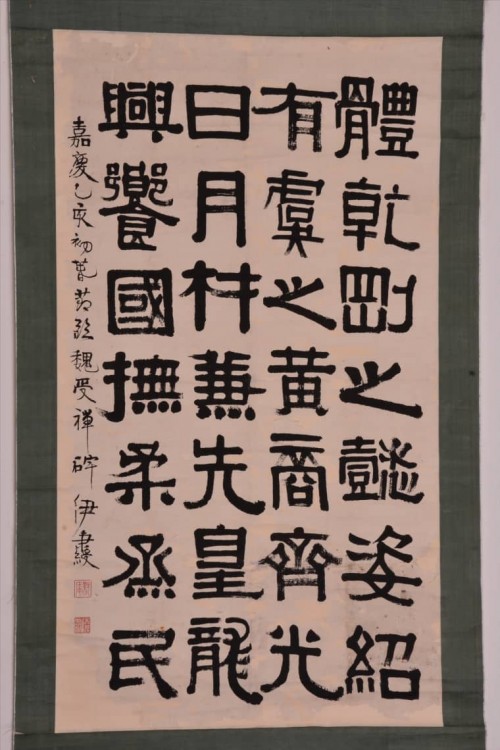 體乾剛之懿姿紹
有虞之黃裔齊光
日月材兼先皇龍
興饗國撫柔烝民
嘉慶乙亥初春節臨魏受禪碑 伊秉綬